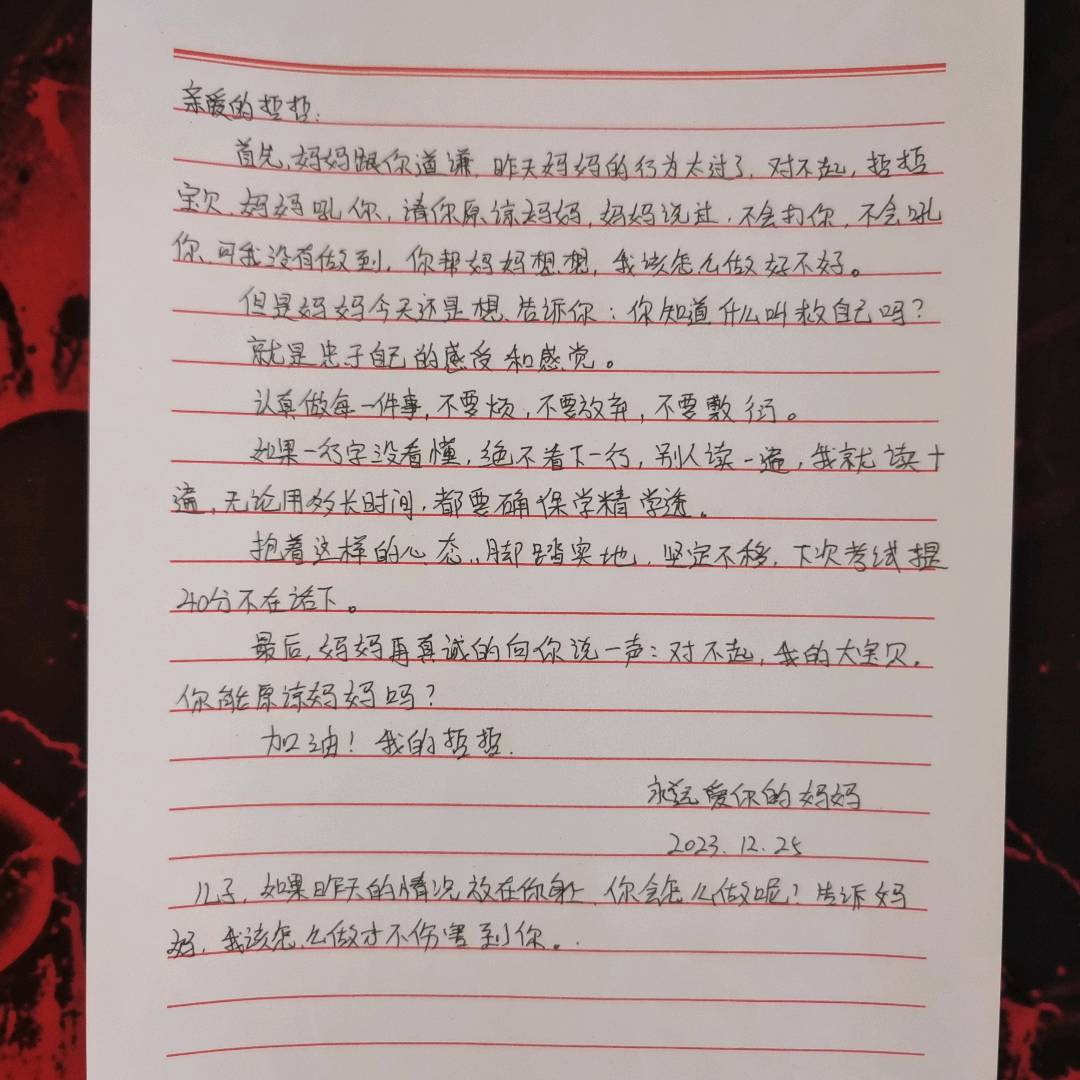 亲爱的哲哲：
首先，妈妈跟你道谦，昨天妈妈的行为太过了，对不起，哲哲
宝贝，妈妈吼你，请你原谅妈妈，妈妈说过，不会打你，不会吼
你，可我没有做到，你帮妈妈想想，我该怎么做好不好。
但是妈妈今天还是想告诉你：你知道什么叫救自己吗？
就是忠于自己的感受和感觉。
认真做每一件事，不要烦，不要放弃，不要敷衍。
如果一行字没看懂，绝不看下一行，别人读一遍，我就读十
遍，无论用多长时间，都要确保学精学透。
抱着这样的心态，脚踏实地，坚定不移，下次考试提
40分不在话下。
最后，妈妈再真诚的向你说一声：对不起，我的大宝贝，
你能原谅妈妈吗？
加油！我的哲哲.
永远爱你的妈妈
2023.12.25
儿子，如果昨天的情况放在你身上，你会怎么做呢？告诉妈
妈，我该怎么做才不伤害到你。